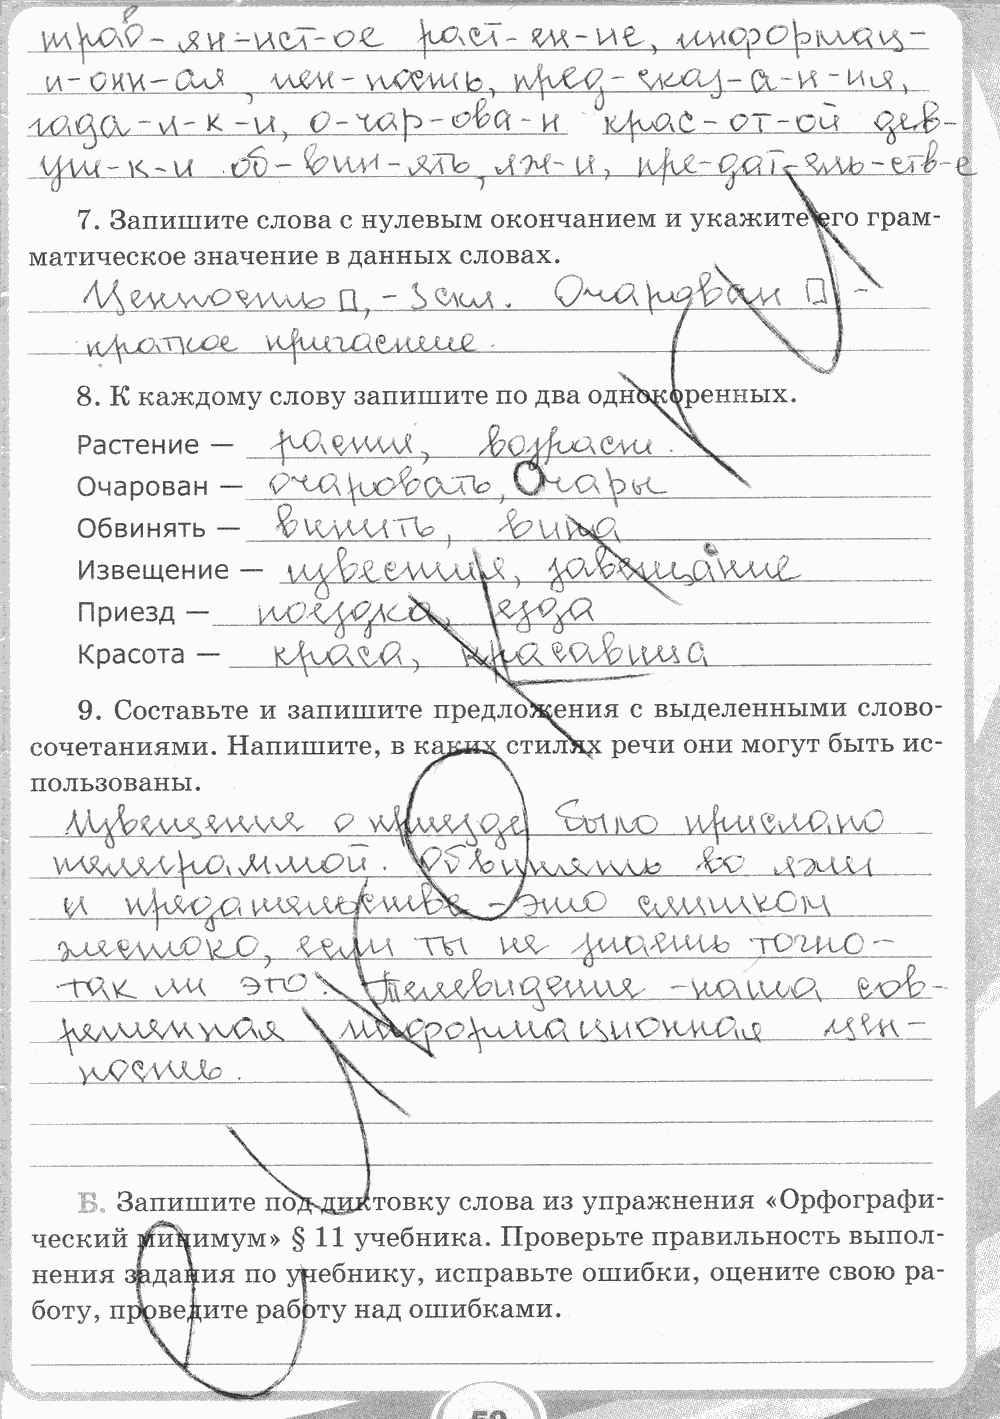 трав-ян-ист-ое раст-ен-ие, информац-
и-онн-ая, цен-ность, пред-сказ-а-н-ия,
гада-л-к-и, о-чар-ова-н крас-от-ой дев-
уш-к-и об-вин-ять, лж-и, пре-дат-ель-ств-е
7. Запишите слова с нулевым окончанием и укажите его грам-
матическое значение в данных словах.
Ценность□, - 3 скл. Очарован □ -
краткое причастие.
8. К каждому слову запишите по два однокоренных.
Растение — расти, возраст.
Очарован — очаровать, Очары
Обвинять — винить, вина
Извещение — известия, завещание
Приезд — поездка, езда
Красота — краса, красавица
9. Составьте и запишите предложения с выделенными слово-
сочетаниями. Напишите, в каких стилях речи они могут быть ис-
пользованы.
Извещение о приезде было прислано
телеграммой. Обвинять во лжи
и предательстве - это слишком
жестоко, если ты не знаешь точно-
так ли это. Телевидение - наша сов-
ременная информационная цен-
ность.
Б. Запишите под диктовку слова из упражнения «Орфографи-
ческий минимум» § 11 учебника. Проверьте правильность выпол-
нения задания по учебнику, исправьте ошибки, оцените свою ра-
боту, проведите работу над ошибками.
59